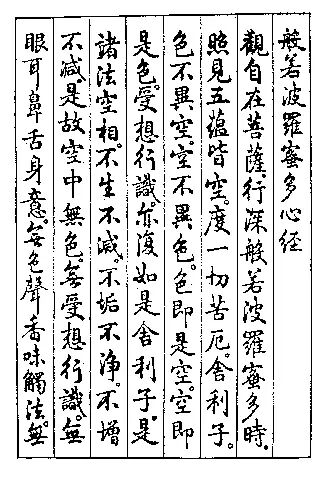 般若波羅蜜多心経
觀自在菩薩。行深般若波羅蜜多時。
照見五蘊皆空。度一切苦厄。舍利子。
色不異空。空不異色。色即是空。空即
是色。受想行識。亦復如是舍利子。是
諸法空相。不生不滅。不垢不淨。不增
不減。是故空中無色。無受想行識。無
眼耳鼻舌身意。無色聲香味觸法。無